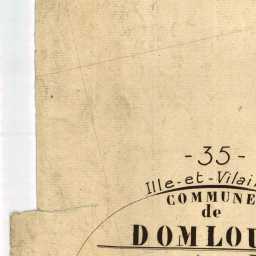 - 35 -
Ille-et-Vilai
COMMUNE
de
DOMLOU